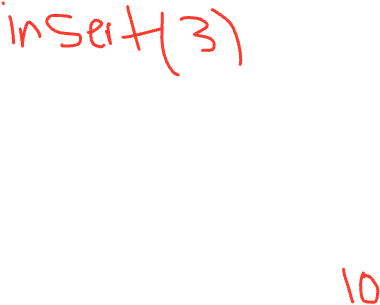 insert(3)
10